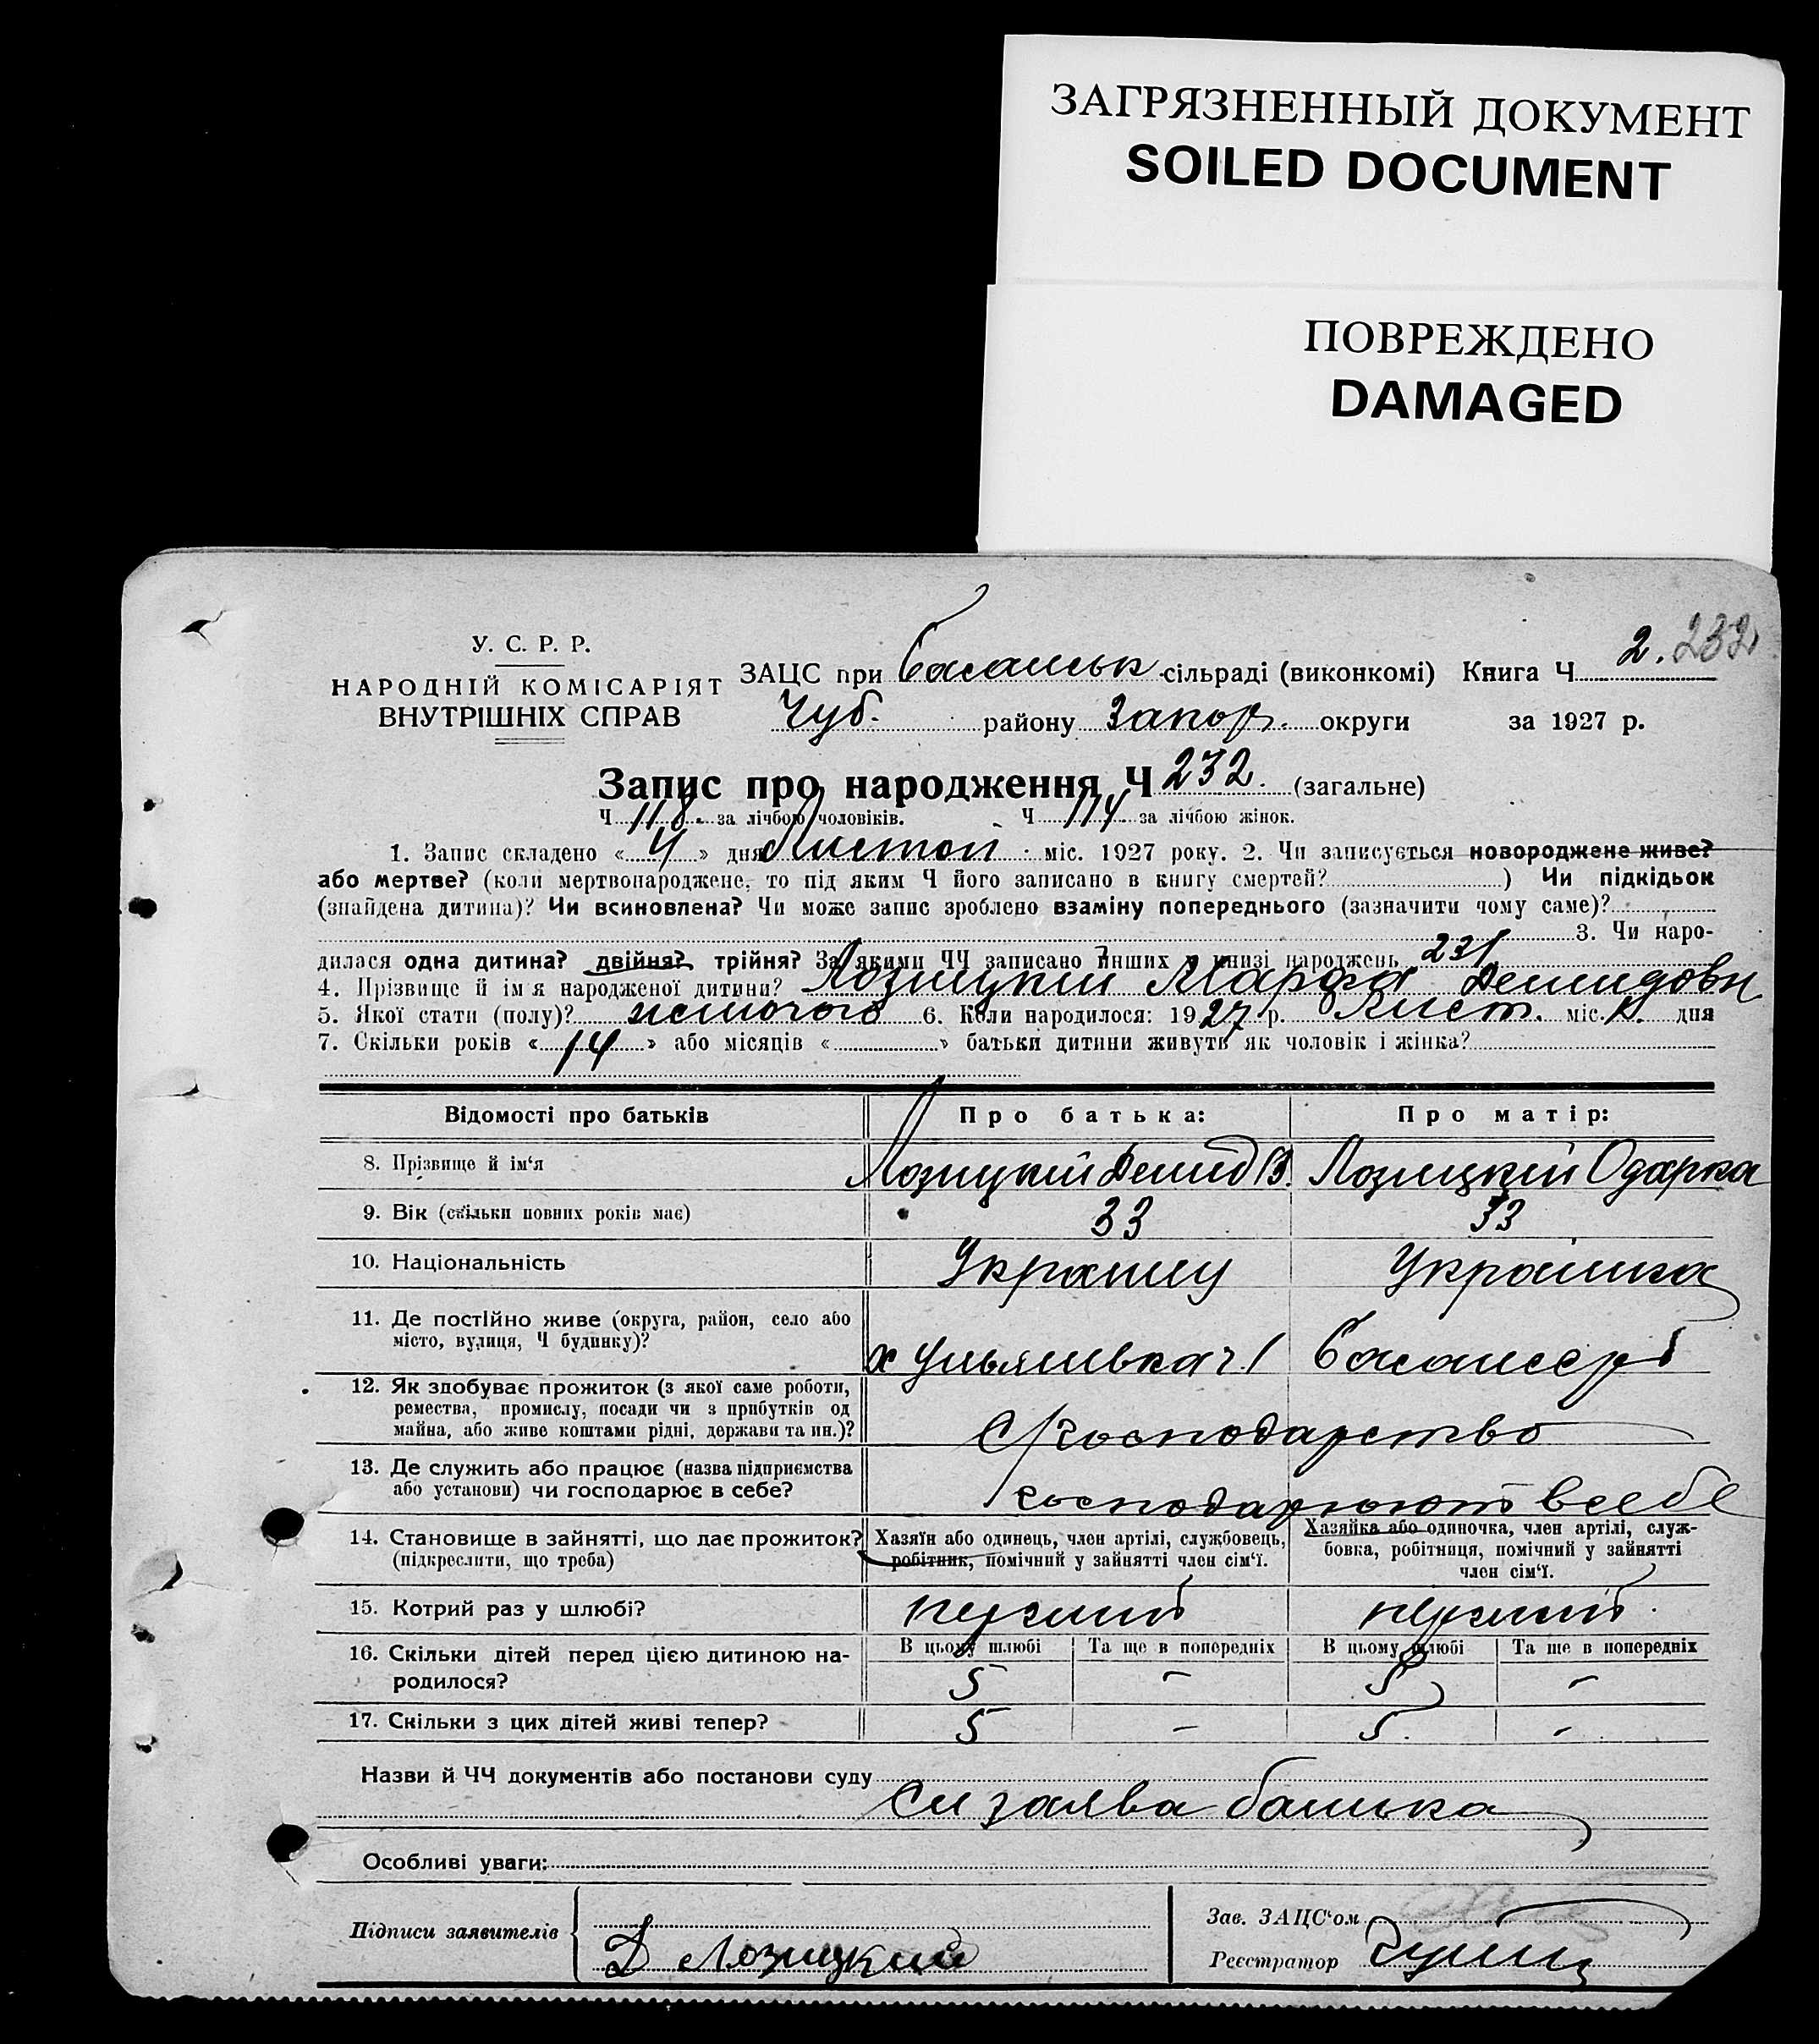 ЗАГРЯЗНЕННЫЙ ДОКУМЕНТ
SOILED DOCUMENT
ПОВРЕЖДЕНО
DAMAGED
2. 232
У. С. Р. Р.
НАРОДНІЙ КОМІСАРІЯТ
ВНУТРІШНІХ СПРАВ
ЗАЦС при сільраді (виконкомі) Книга Ч
Чуб. району Запор. округи за 1927 р.
Запис про народження Ч 232. (загальне)
Ч 118. за лічбою чоловіків. Ч 114 за лічбою жінок.
1. Запис складено « 4 » дня Листоп міс. 1927 року. 2. Чи записується новороджене живе?
або мертве? (коли мертвонароджене, то під яким Ч його записано в книгу смертей? ) Чи підкідьок
(знайдена дитина)? Чи всиновлена? Чи може запис зроблено взаміну попереднього (зазначити чому саме)?
3. Чи наро-
дилася одна дитина? двійня? трійня? За якими ЧЧ записано інших в книзі народжень 231
4. Прізвище й ім'я народженої дитини? Лозицкий Марфа Демидовн
5. Якої стати (полу)? жіночого 6. Коли народилося: 1927 р. Лист. міс. дня
7. Скільки років « 14 » або місяців « » батьки дитини живуть як чоловік і жінка?
Відомості про батьків Про батька: Про матір:
8. Прізвище й ім'я Лозицкий Демид В. Лозицкий Одарка
9. Вік (скільки повних років має) 33 33
10. Національність Українец Українка
11. Де постійно живе (округа, район, село або
місто, вулиця, Ч будинку)?
12. Як здобуває прожиток (з якої саме роботи,
ремества, промислу, посади чи з прибутків од
майна, або живе коштами рідні, держави та ин.)? С/господарство
13. Де служить або працює (назва підприємства
або установи) чи господарює в себе? господарюють в себе
14. Становище в зайнятті, що дає прожиток?
(підкреслити, що треба)
Хазяїн або одинець, член артілі, службовець,
робітник, помічний у зайнятті член сім'ї.
Хазяйка або одиночка, член артілі, служ-
бовка, робітниця, помічний у зайнятті
член сім'ї.
15. Котрий раз у шлюбі?
В цьому шлюбі Та ще в попередніх В цьому шлюбі Та ще в попередніх
16. Скільки дітей перед цією дитиною на-
родилося? 5 - 5 -
17. Скільки з цих дітей живі тепер? 5 - 5. -
Назви й ЧЧ документів або постанови суду
заява батька
Особливі уваги:
Підписи заявителів
Д Лозицкий
Зав. ЗАЦС'ом
Реєстратор